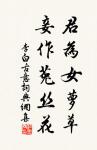 君為女蘿草
妾作菟絲花
李白古意詞典網集